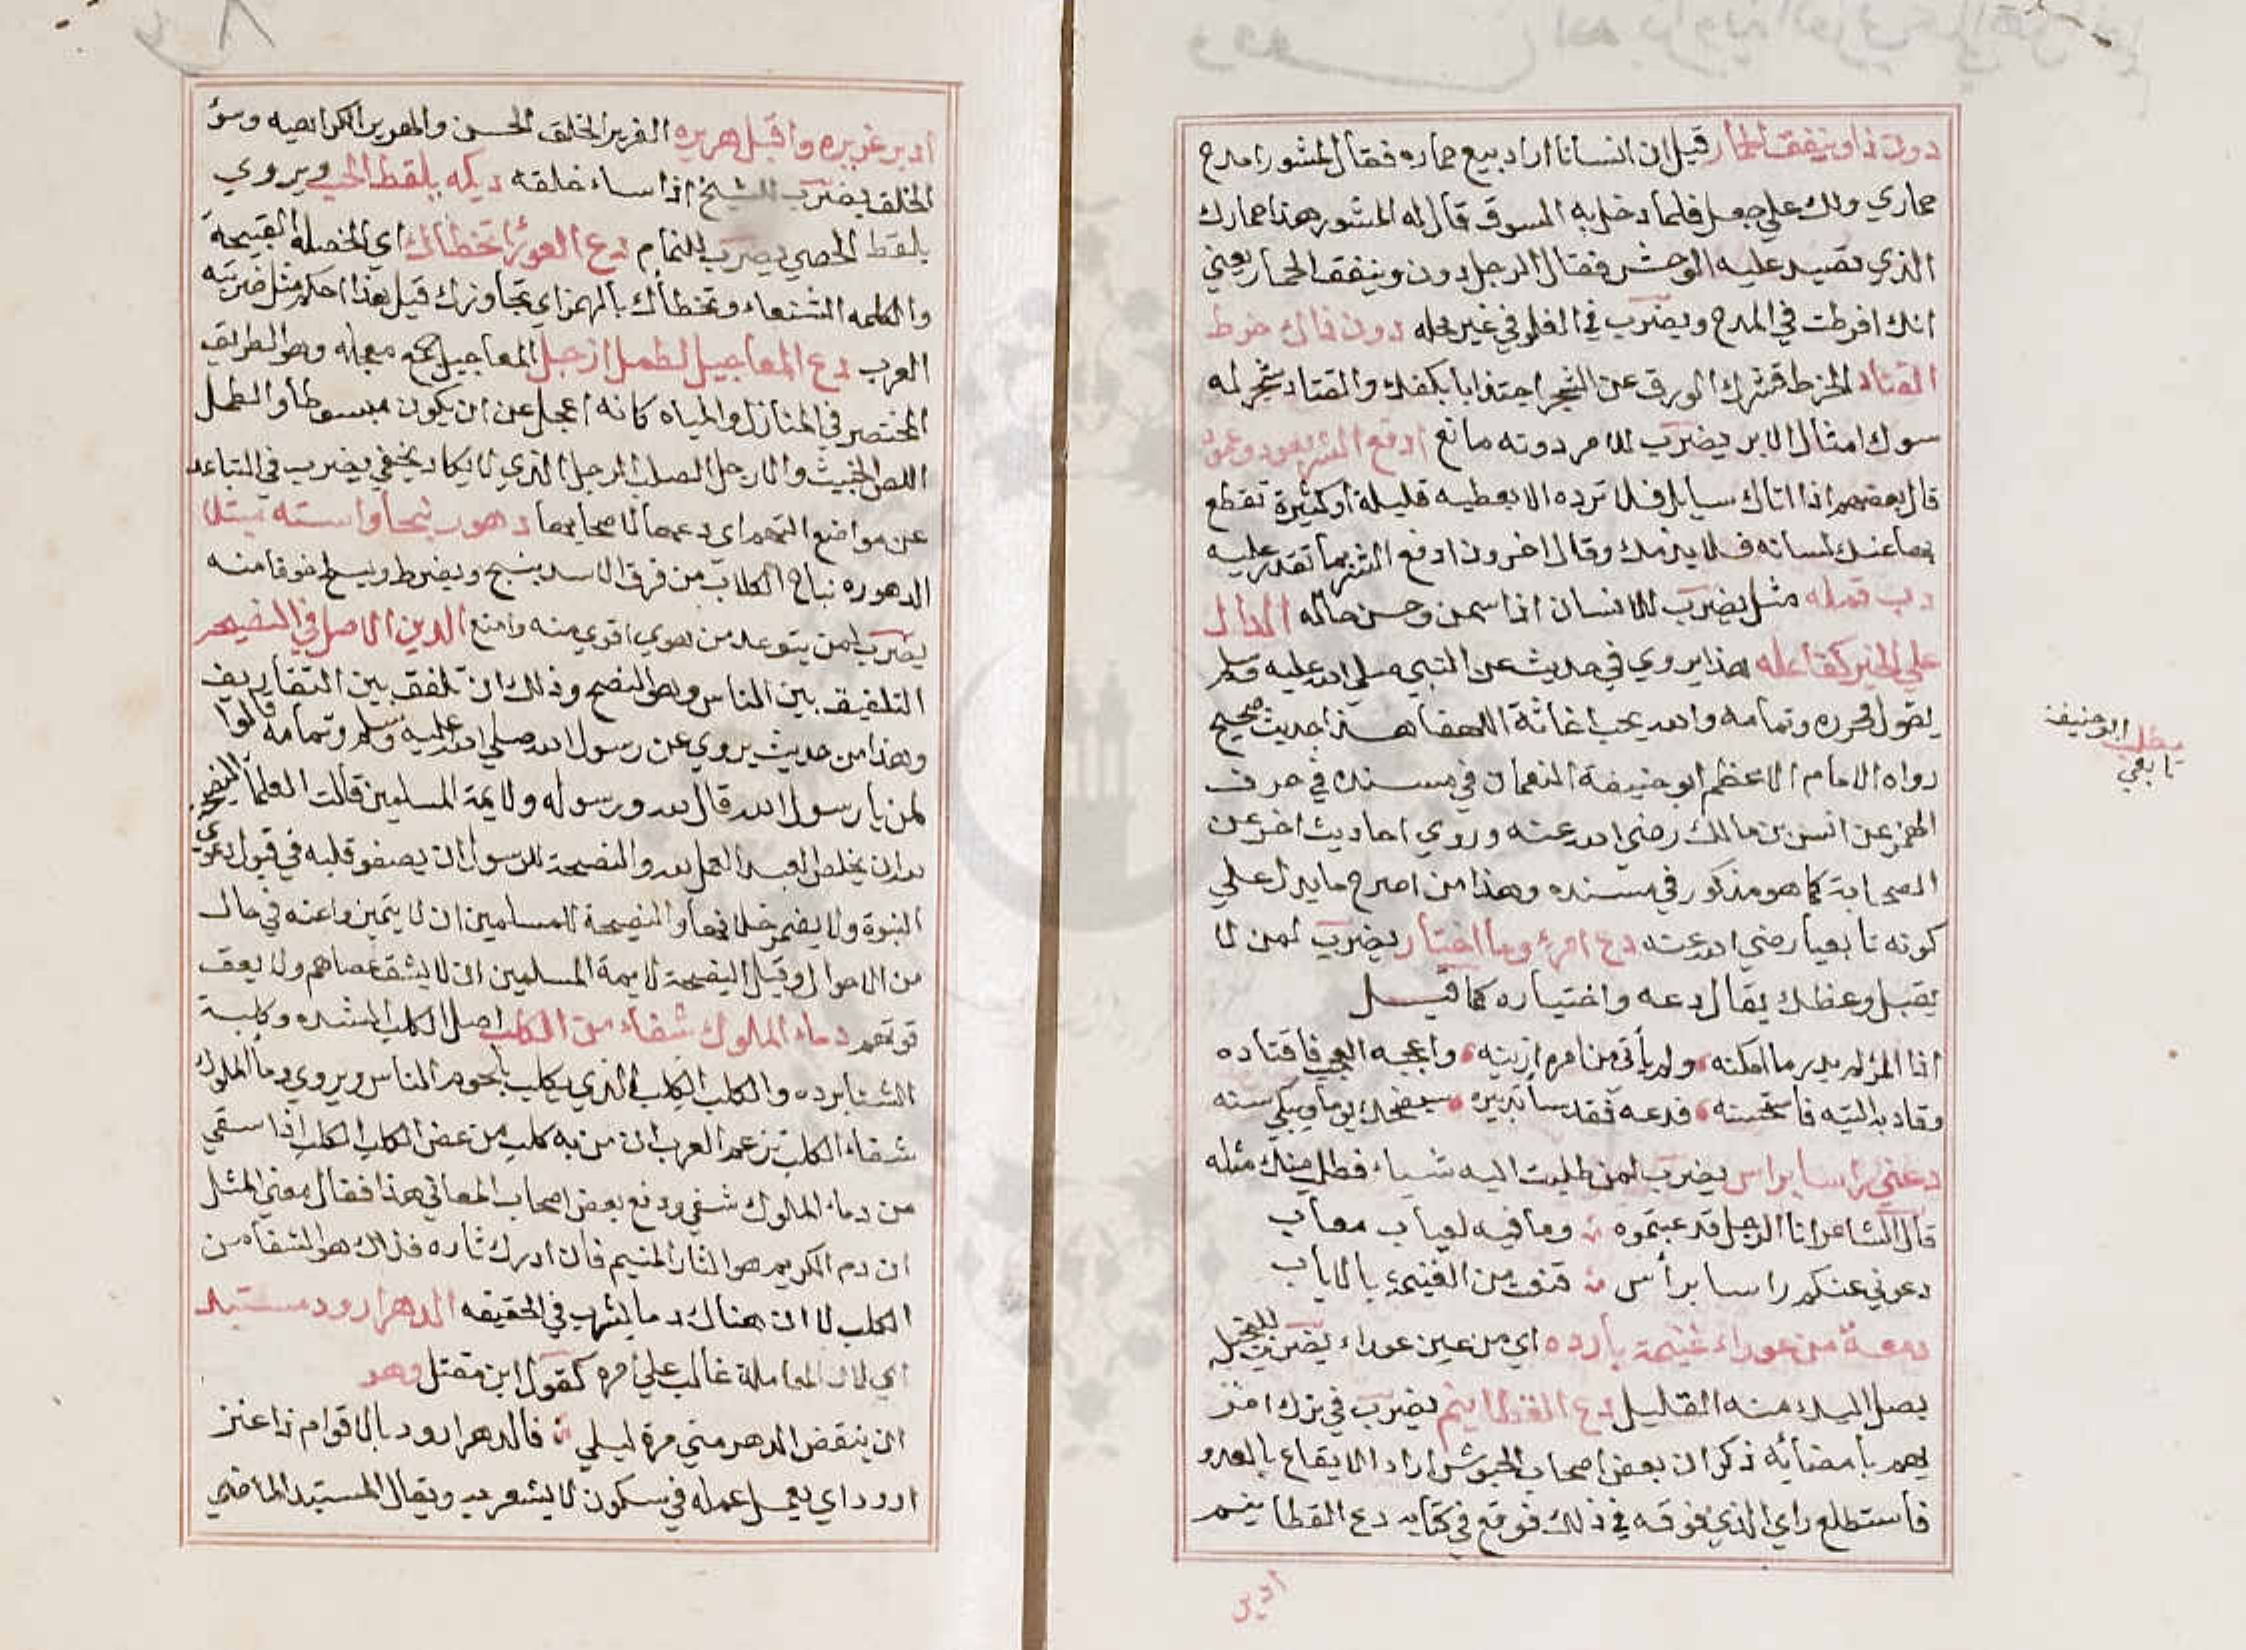 دون ذا وينفق الحمار قيل ان انسانا اراد بيع حماره فقال لمشور امدح
حماري ولك علي جعل فلما دخل به السوق قال له المشور هذا حمارك
الذي تصيد عليه الوحش فقال الرجل دون وينفق الحمار يعني
انك افرطت في المدح ويضرب في الغلو في غير محله دون ذاك خرط
القتاد الخرط قشرك الورق عن الشجر اجتذابا بكفك والقتاد شجر له
شوك امثال الابر يضرب للامر دونه مانع ادفع الشر بعود وعمود
قال بعضهم اذا اتاك سايل فلا ترده الا بعطيه قليلة او كثيرة تقطع
بها عنك لسانه فلا يذمك وقال اخرون ادفع الشر بما تقدر عليه
دب قمله مثل يضرب للانسان اذا سمن وحسن حاله الدال
علي الخير كفاعله هذا يروي في حديث عن النبي صلي الله عليه وسلم
يقول وتمامه والله يحب اغاثة اللهفا هذا حديث صحيح
رواه الامام الاعظم ابو حنيفة النعمان في مسنده في حرف
الهمز عن انس بن مالك رضي الله عنه وروي احاديث اخر عن
الصحابة كما هو مذكور في مسنده وهذا من اصرح ما يدل علي
كونه تابعيا رضي الله عنه دع امرء وما اختار يضرب لمن لا
يقبل وعظك يقال دعه واختياره كما قيل
اذا المرء لم يدر ما امكنه ولم يأتي من امره ازينه واعجبه العجب فاقتاده
وقاد به التيه فاستحسنه فدعه فقد ساء تدبيره سيضحك يوما ويبكي سنه
دعني راسا براس يضرب لمن طلبت اليه شيا فطلب منك مثله
قال الشاعر انا الرجل قد عبتموه وما فيه لعياب معاب
دعوني عنكم راسا برأس قنوت من الغنيمة بالاياب
دمعة من عوراء غنيمة بارده اي من عين عوراء يضرب للبخيل
يصل اليك منه القليل دع القطا ينم يضرب في ترك امر
يهم بامضائه ذكر ان بعض اصحاب الجيوش اراد الايقاع بالعدو
فاستطلع راي الذي فوقه في ذلك فوقع في كتابه دع القطا ينم
ادبر
مطلب ابو حنيفة
تابعي
ادبر غريره واقبل هريره الغرير الخلق الحسن والهرير الكراهيه وسؤ
الخلق يضرب للشيخ اذا ساء خلقه ديكه يلقط الحب ويروي
يلقط الحصي يضرب للنمام دع العوراء تخطاك اي الخصله القبيحة
والكلمه الشنعاء وتخطاك بالهمز اي تجاوزك قيل هذا احكم مثل ضربته
العرب دع المعاجيل لطمل ازجل المعاجيل جمع معجله وهو الطريق
المختصر في المنازل والمياه كانه اعجل عن ان يكون مبسوطا والطمل
اللص الخبيث والارجل الصلب الرجل الذي لا يكاد يخفي يضرب في التباعد
عن مواضع التهم اي دعها لاصحابها دهور نبحا واسته مبتلا
الدهوره نباح الكلاب من فرق الاسد ينبح ويضرط ويسلح خوفا منه
يضرب لمن يتوعد من هوي اقوي منه وامنع الدين الاصل في النصيحه
التلفيق بين الناس وهو النصح وذلك ان تلفق بين التفاريف
وهذا من حديث يروي عن رسول الله صلي الله عليه وسلم وتمامه قالوا
لمن يا رسول الله قال لله ورسوله ولايمة المسلمين قالت العلما النصيحة
لله ان يخلص العبد العمل لله والنصيحة للرسول ان يصفو قلبه في قبول دعوي
النبوة ولا يضمر خلافها والنصيحة للمسلمين ان لا يتميزوا عنه في حال
من الاحوال وقيل النصيحة لايمة المسلمين ان لا يشق عصاهم ولا يعق
فوقهم دماء الملوك شفاء من الكلب اصل الكلب الشده وكلبة
الشتا برده والكلب الكلب الذي يكلب بلحوم الناس ويروي دما الملوك
شفاء الكلب تزعم العرب ان من به كلب من عض الكلب الكلب اذا سقي
من دماء الملوك شفي ودفع بعض اصحاب المعاني هذا فقال معني المثل
ان دم الكريم هو الثار المنيم فان ادرك ثاره فذاك هو الشفا من
الكلب لا ان هناك دما يشرب في الحقيقه الدهر ارود مستبد
اي لان المعاملة غالب علي امره كقول ابن مقبل وهو
ان ينقض الدهر مني مرة لبلي فالدهر ارود بالاقوام ذا غير
ارود اي يعمل عمله في سكون لا يشعر به ويقال المستبد الماضي